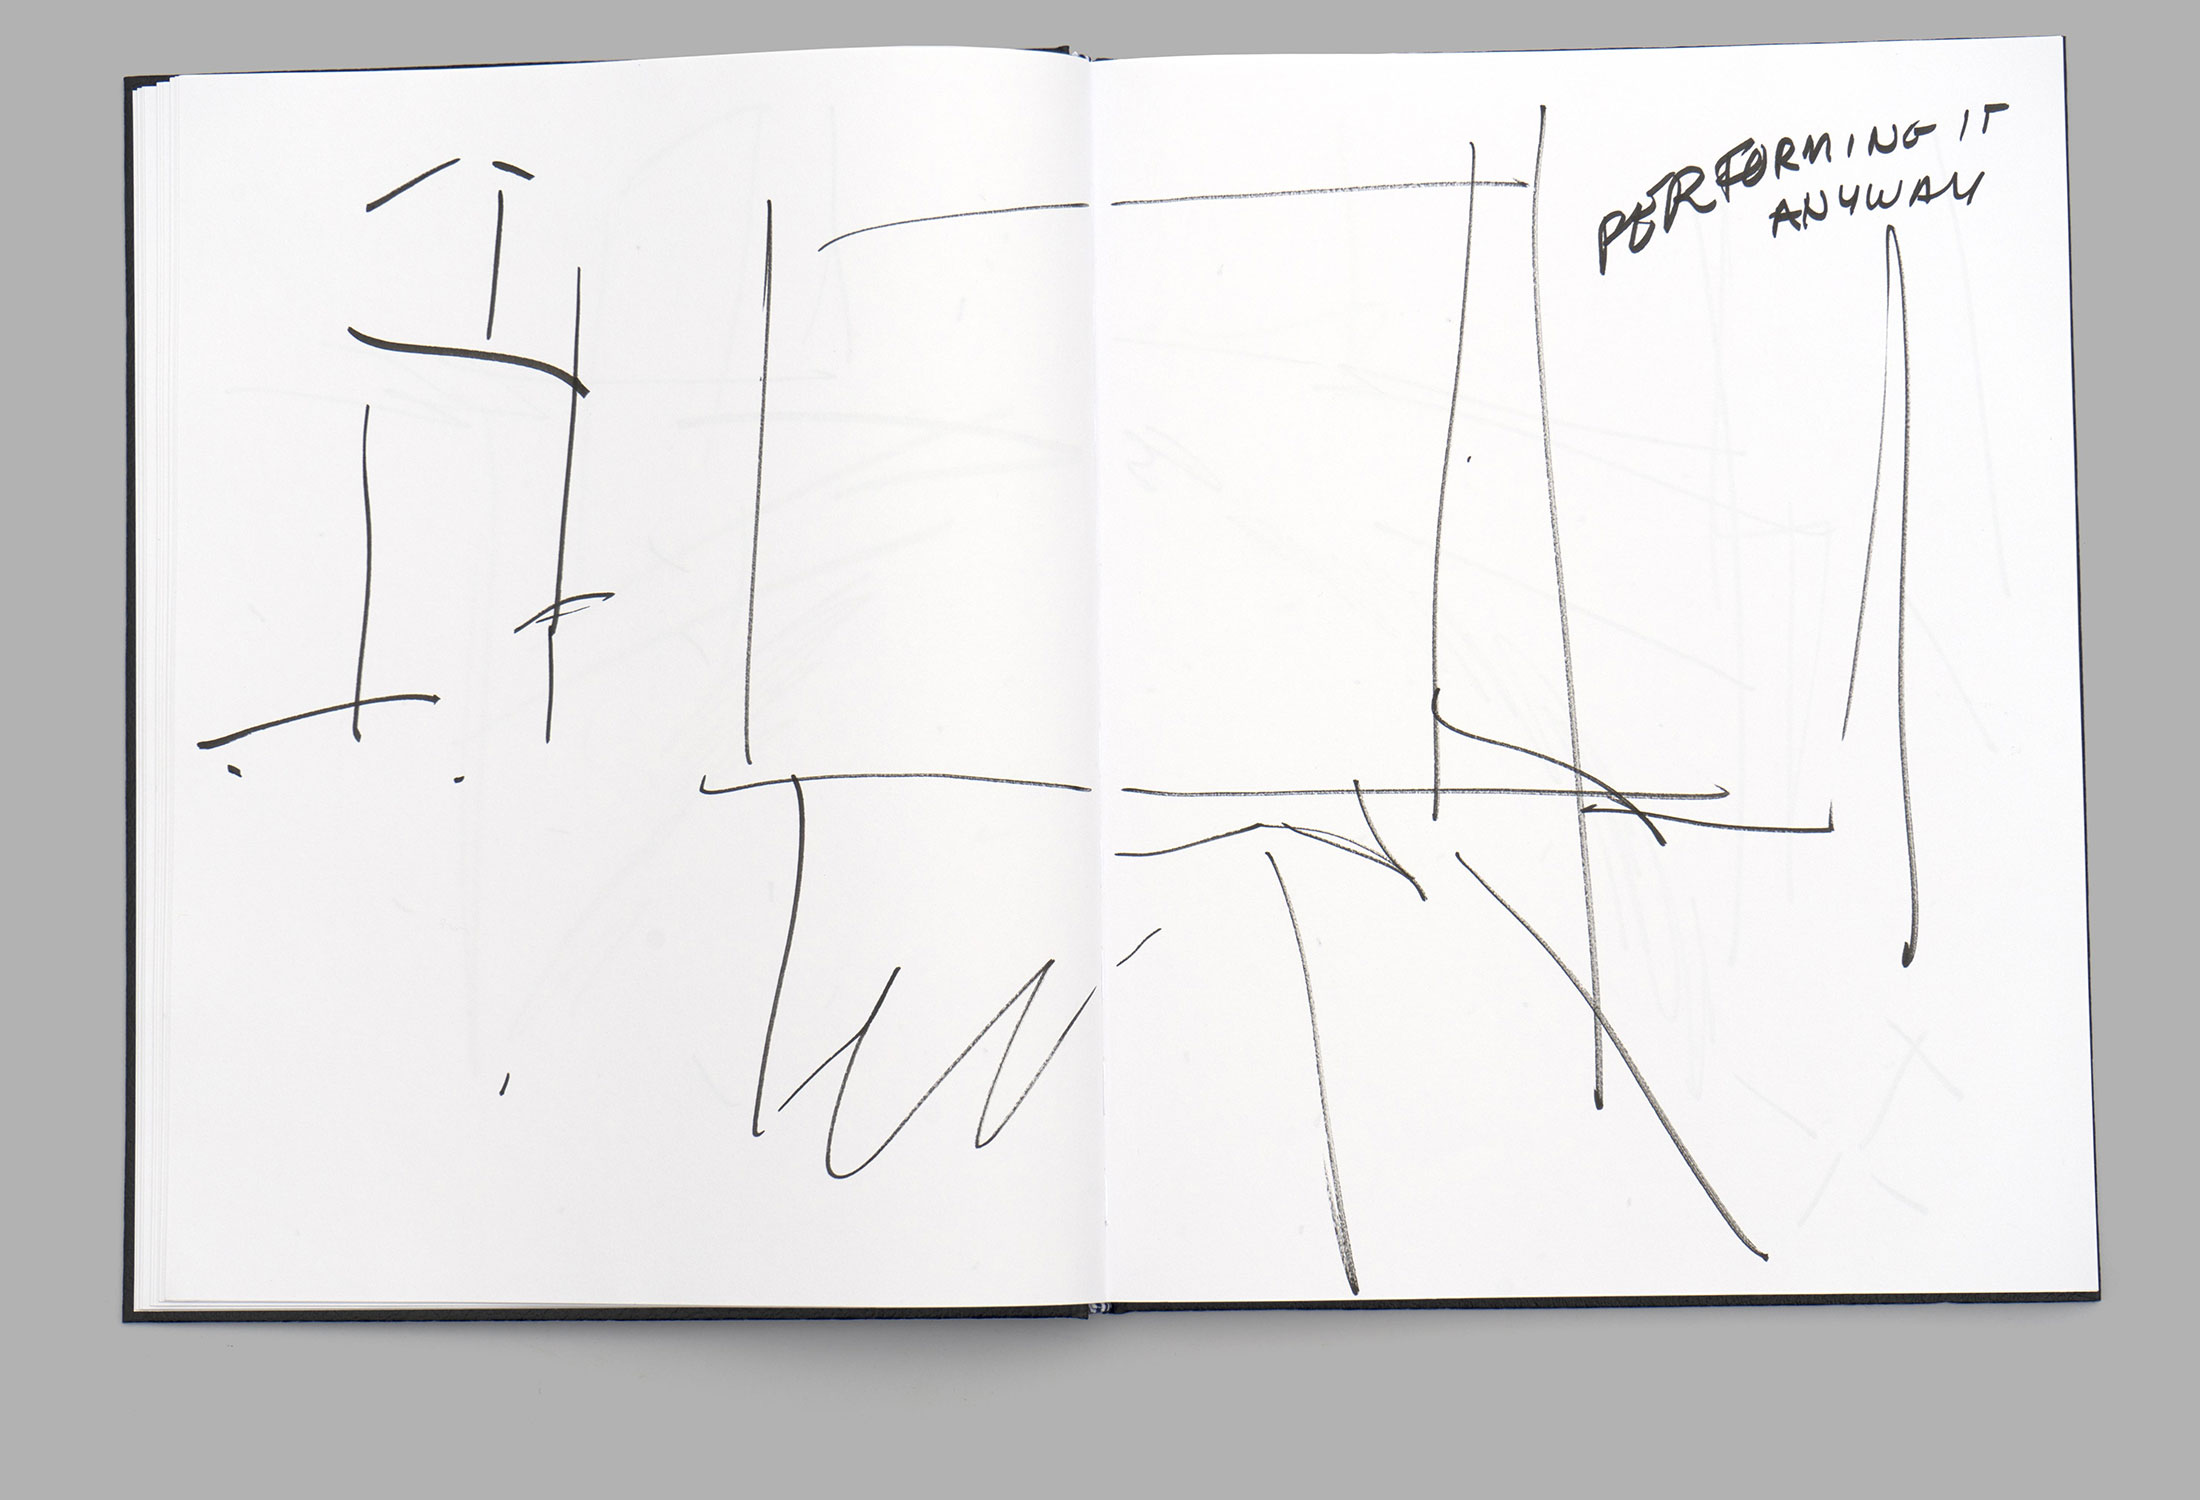 PERFORMING IT
ANYWAY